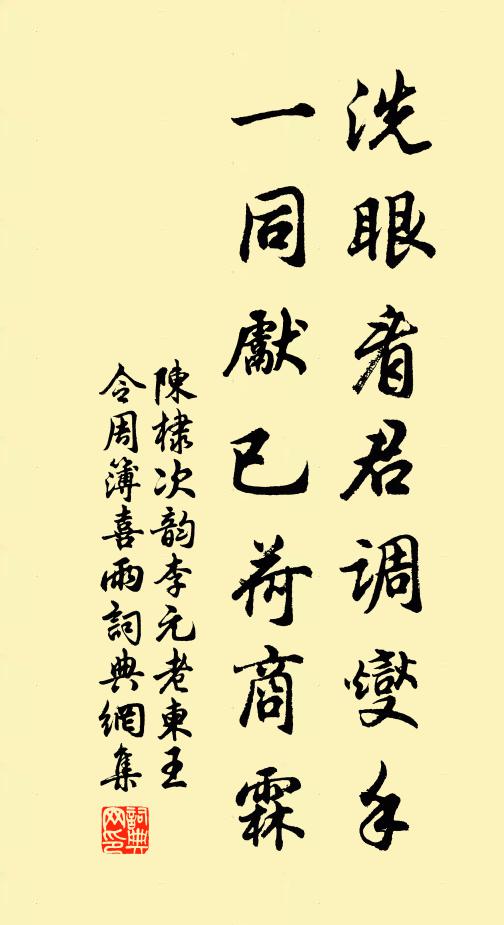 洗眼看君調燮手
一同獻已荷商霖
陳棣次韵李元老東王
令周簿喜雨詞典網集
詞典
网印